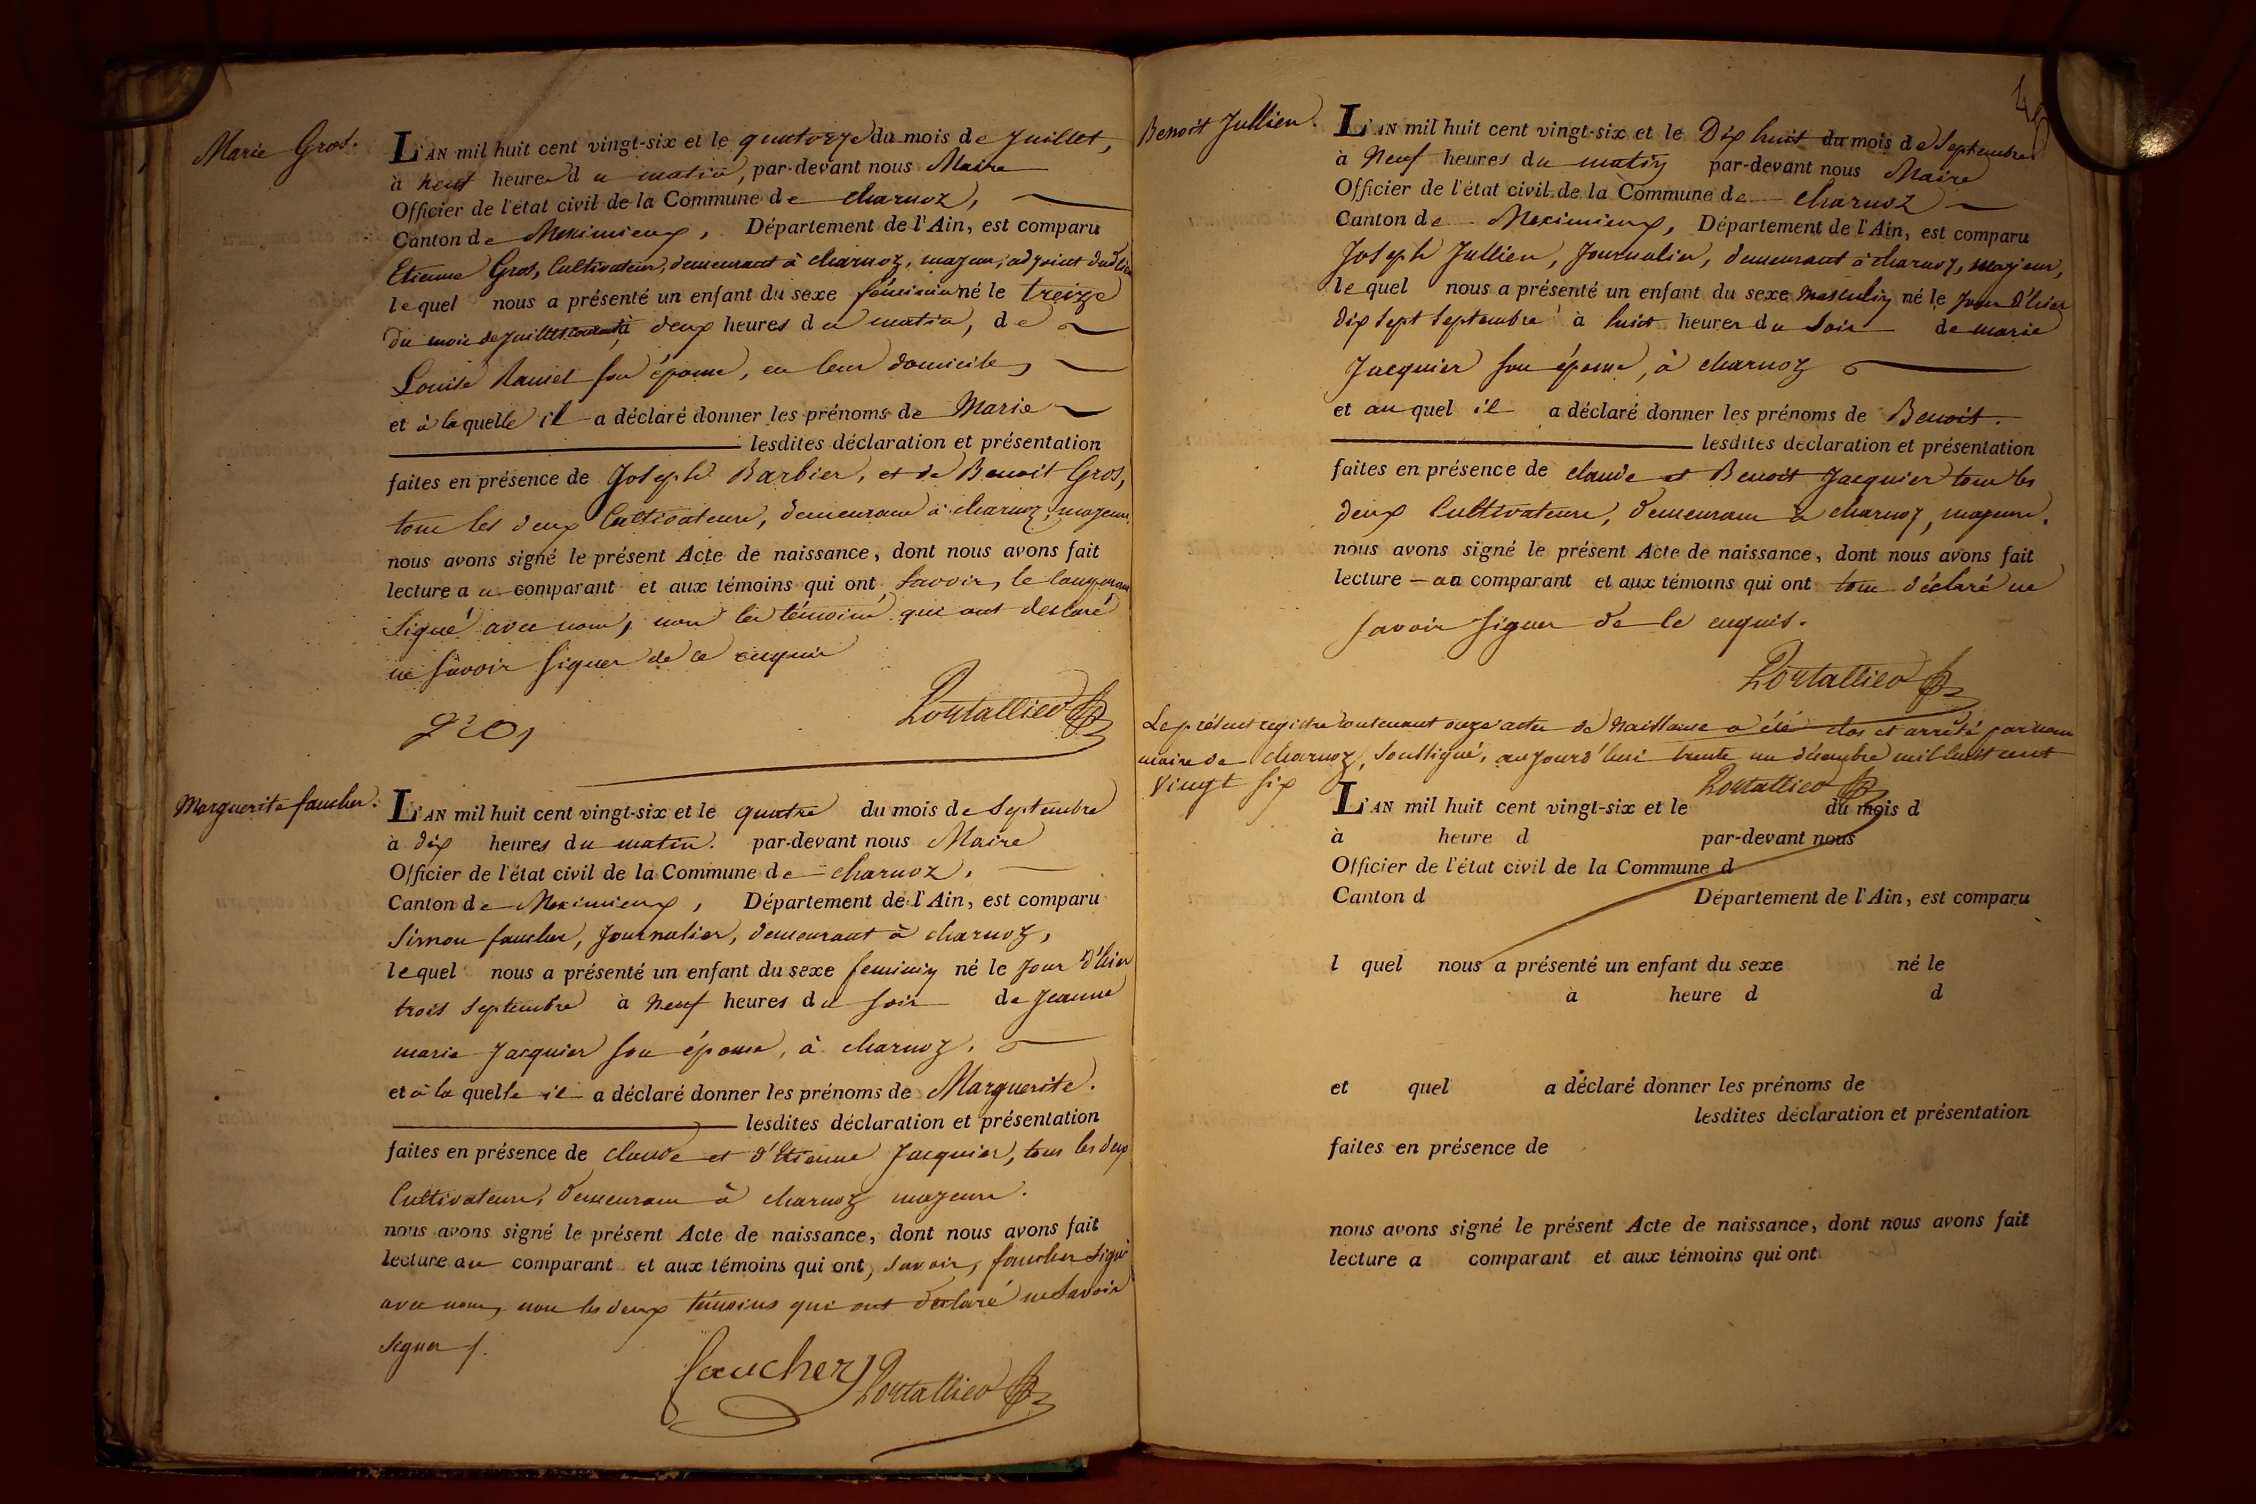 Marie Gros.
L'AN mil huit cent vingt-six et le quatorze du mois de Juillet,
à neuf heures du matin, par-devant nous Maire
Officier de l'état civil de la Commune de charnoz,
Canton de Meximieux, Département de l'Ain, est comparu
Etienne Gros, Cultivateur, demeurant à charnoz, majeur, adjoint dudit lieu
lequel nous a présenté un enfant du sexe féminin né le treize
du mois de juillet courant, à deux heures du matin, de
Louise Ramel son épouse, en leur domicile,
et à laquelle il a déclaré donner les prénoms de Marie
lesdites déclaration et présentation
faites en présence de Joseph Barbier, et de Benoit Gros,
tous les deux Cultivateurs, demeurans à charnoz, majeurs.
nous avons signé le présent Acte de naissance, dont nous avons fait
lecture au comparant et aux témoins qui ont, savoir, le comparant
signé avec nous, non les témoins qui ont declaré
ne savoir signer de ce enquis
gros
Portallier
Marguerite faucher.
L'AN mil huit cent vingt-six et le quatre du mois de Septembre
à dix heures du matin. par-devant nous Maire
Officier de l'état civil de la Commune de charnoz.
Canton de Meximieux, Département de l'Ain, est comparu
Simon faucher, Journalier, demeurant à charnoz,
lequel nous a présenté un enfant du sexe feminin né le jour d'hier
trois septembre à neuf heures du soir de Jeanne
marie Jacquier son épouse, à charnoz.
et à la quelle il a déclaré donner les prénoms de Marguerite.
lesdites déclaration et présentation
faites en présence de claude et d'Etienne Jacquier, tous les deux
Cultivateurs, demeurans à charnoz majeurs.
nous avons signé le présent Acte de naissance, dont nous avons fait
lecture au comparant et aux témoins qui ont, savoir, faucher signé
avec nous, non les deux témoins qui ont declaré ne savoir
signer.
faucher Portallier
Benoit Jullien.
L'AN mil huit cent vingt-six et le Dix huit du mois de Septembre
à Neuf heures du matin par-devant nous Maire
Officier de l'état civil de la Commune de charnoz
Canton de Meximieux, Département de l'Ain, est comparu
Joseph Jullien, Journalier, demeurant à charnoz, majeur,
lequel nous a présenté un enfant du sexe masculin né le jour d'hier
dix sept septembre à huit heures du soir de marie
Jacquier son épouse, à charnoz
et au quel il a déclaré donner les prénoms de Benoit.
lesdites déclaration et présentation
faites en présence de claude et Benoit Jacquier tous les
deux Cultivateurs, demeurans à charnoz, majeurs.
nous avons signé le présent Acte de naissance, dont nous avons fait
lecture au comparant et aux témoins qui ont tous déclaré ne
savoir signer de ce enquis.
Portallier
Le présent registre contenant onze actes de Naissance a été clos et arrêté par nous
maire de charnoz, soussigné, aujourd'hui trente un décembre mil huit cent
vingt six
Portallier
L'AN mil huit cent vingt-six et le du mois d
à heure d par-devant nous
Officier de l'état civil de la Commune d
Canton d Département de l'Ain, est comparu
l quel nous a présenté un enfant du sexe né le
à heure d d
et quel a déclaré donner les prénoms de
lesdites déclaration et présentation
faites en présence de
nous avons signé le présent Acte de naissance, dont nous avons fait
lecture a comparant et aux témoins qui ont